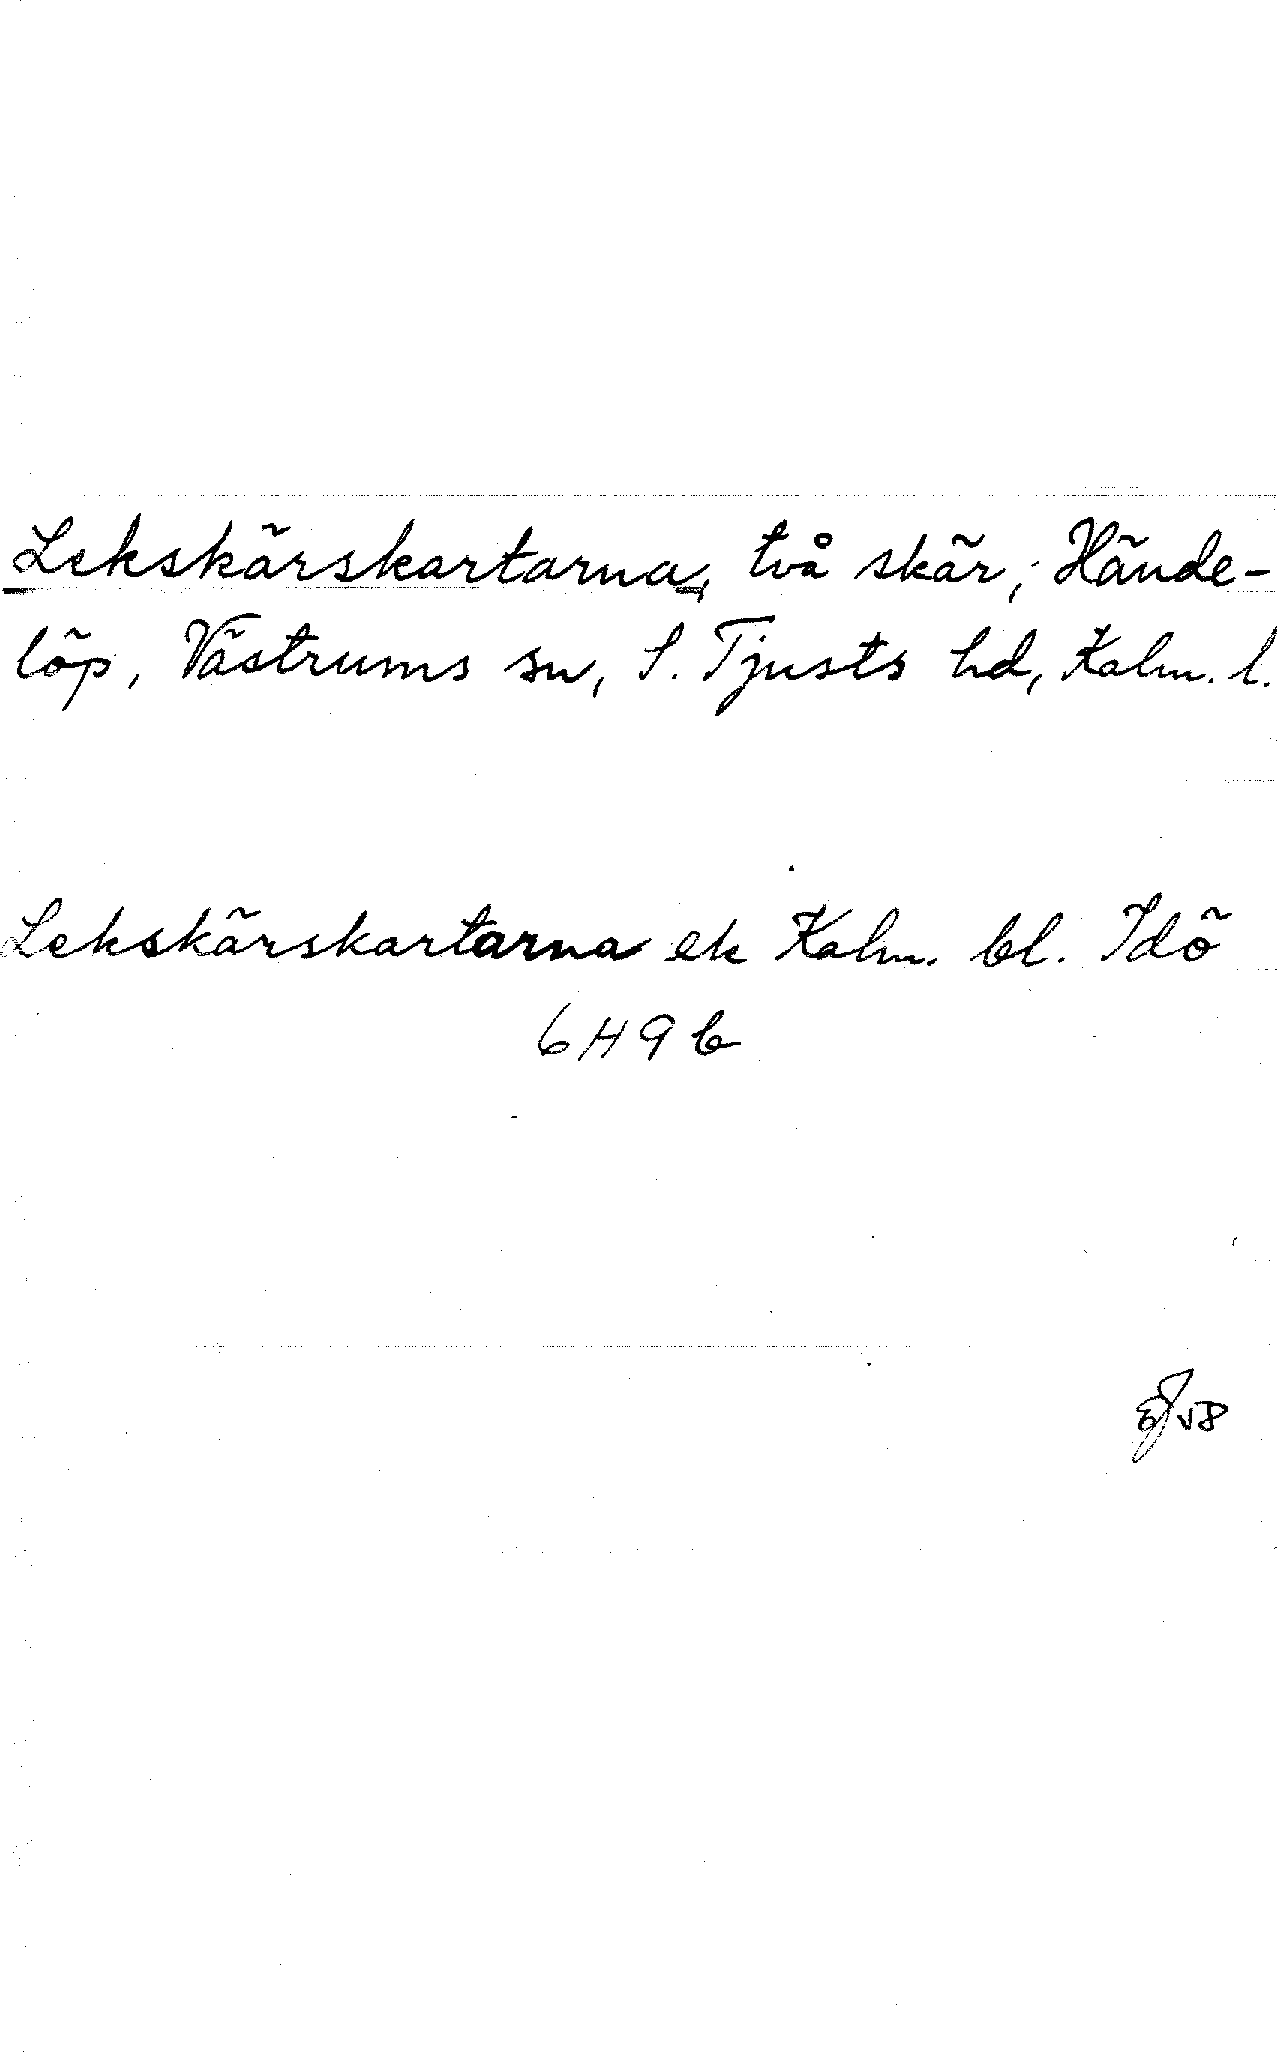 Lekskärskartarna, två skär, Hände-
löp, Västrums sn, S. Tjusts hd, Kalm. l.
Lekskärskartarna ek Kalm. bl. Idö
6H9b